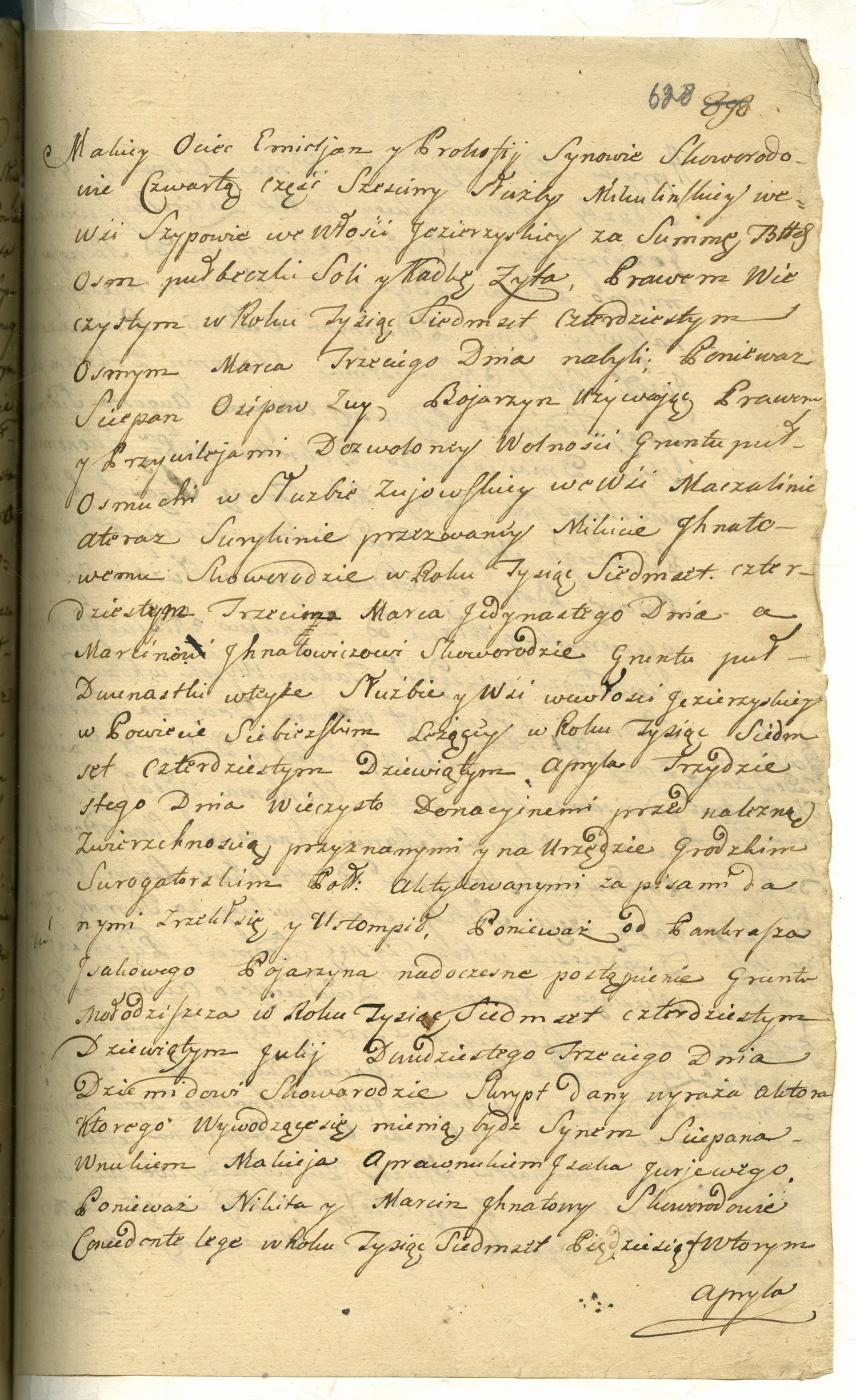 628 898
Makiey Ociec Emieljan y Prokofij Synowie Skoworodo-
wie Czwartą część Szesciny Służby Mikulinskiey we=
Wsi Szypowie we Włości Jezierzyskiey za Summę
Osm pułbeczki Soli y Kadkę Zyta, Prawem Wie
czystym w Roku Tysiąc Siedmset Czterdziestym
Osmym Marca Trzeciego Dnia nabyli; Ponieważ
Sciepan Osipow Zuy, Bojarzyn Używając Prawem
y Przywilejami Dozwoloney Wolności Gruntu puł-
Osmuchi w Służbie Zujowskiey we Wsi Maczulinie
ateraz Surykinie przezwaney Mikicie Jhnato-
wemu Skoworodzie w Roku Tysiąc Siedmset. czter-
dziestym Trzecim Marca Jedynastego Dnia a
Marcinowi Jhnatowiczowi Skoworodzie Gruntu puł-
Dwunastki wteyże Służbie y Wsi wewłości Jezierzyskiey
w Powiecie Siebieżskim Leżącey w Roku Tysiąc Siedm
set Czterdziestym Dziewiątym Apryla Trzydzie
stego Dnia Wieczysto Donacyinemi przed należną
Zwierzchnoscią przyznanymi y na Urzędzie Grodzkim
Surogatorskim Poł: aktykowanymi zapisami da
nymi Zrzekł się y Ustompił, Ponieważ od Pankrasza
Jsakowego Bojarzyna nadoczesne postąpienie Gruntu
Mołodziszcza w Roku Tysiąc Siedmset czterdziestym
Dziewiątym Julij Dwudziestego Trzeciego Dnia
Dziemidowi Skowarodzie Skrypt dany wyraża aktora
Którego Wywodzącesię mienią bydz Synem Sciepana-
Wnukiem Makieja Aprawnukiem Jsaka Jurjewego.
Ponieważ Nikita y Marcin Jhnatowy Skoworodowie
Concedente lege w Roku Tysiąc Siedmset Piędziesiąt Wtorym
Apryla